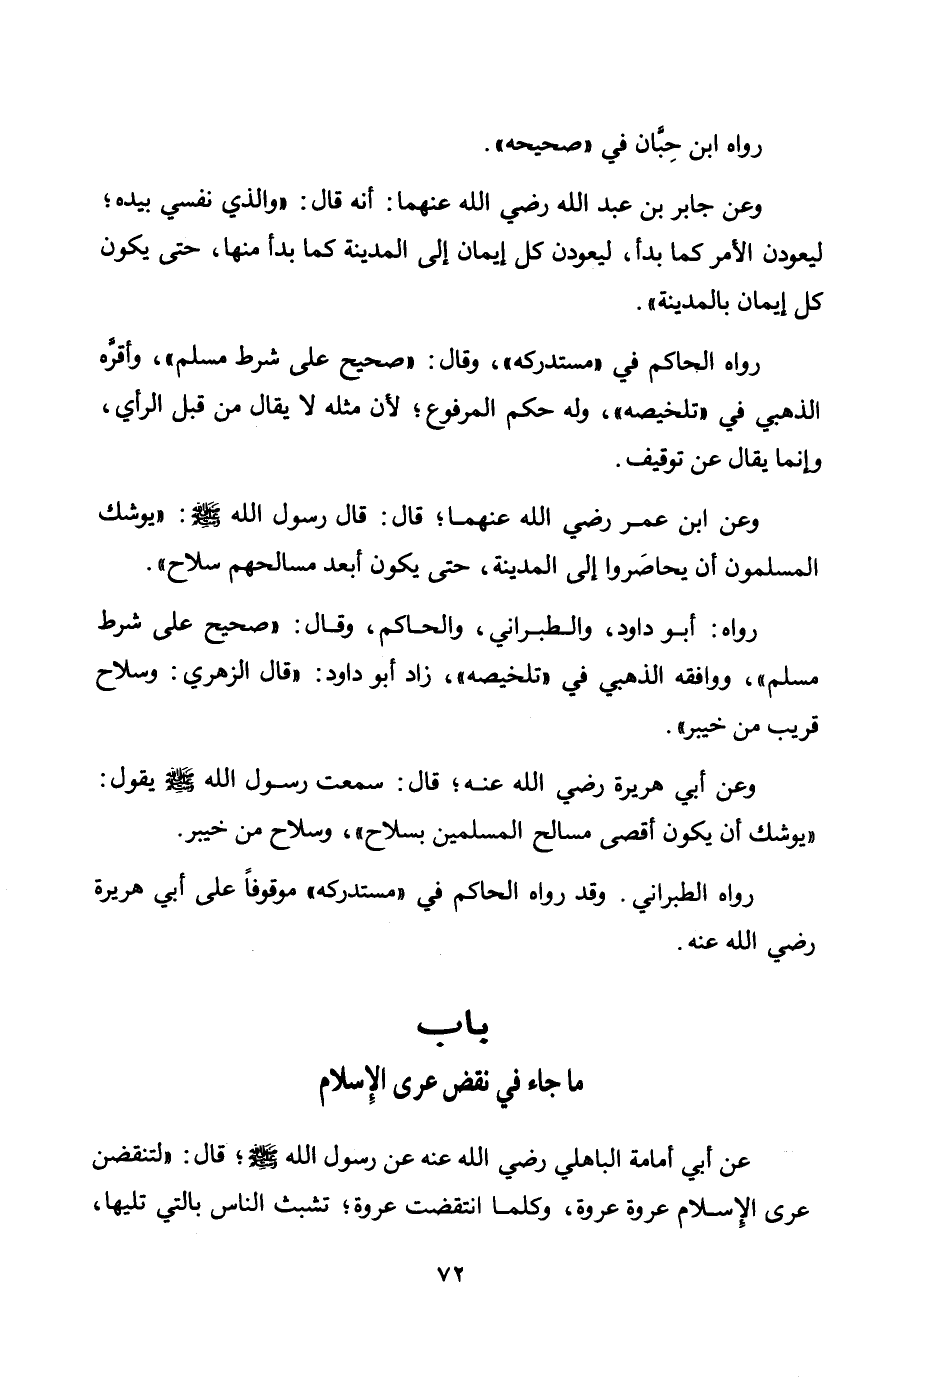 رواه ابن حِبَّان في «صحيحه».
وعن جابر بن عبد الله رضي الله عنهما: أنه قال: «والذي نفسي بيده؛
ليعودن الأمر كما بدأ، ليعودن كل إيمان إلى المدينة كما بدأ منها، حتى يكون
كل إيمان بالمدينة».
رواه الحاكم في «مستدركه»، وقال: «صحيح على شرط مسلم»، وأقرَّه
الذهبي في «تلخيصه»، وله حكم المرفوع؛ لأن مثله لا يقال من قبل الرأي،
وإنما يقال عن توقيف.
وعن ابن عمر رضي الله عنهما؛ قال: قال رسول الله ﷺ: «يوشك
المسلمون أن يحاصَروا إلى المدينة، حتى يكون أبعد مسالحهم سلاح».
رواه: أبو داود، والطبراني، والحاكم، وقال: «صحيح على شرط
مسلم»، ووافقه الذهبي في «تلخيصه»، زاد أبو داود: «قال الزهري: وسلاح
قريب من خيبر».
وعن أبي هريرة رضي الله عنه؛ قال: سمعت رسول الله ﷺ يقول:
«يوشك أن يكون أقصى مسالح المسلمين بسلاح»، وسلاح من خيبر.
رواه الطبراني. وقد رواه الحاكم في «مستدركه» موقوفاً على أبي هريرة
رضي الله عنه.
باب
ما جاء في نقض عرى الإسلام
عن أبي أمامة الباهلي رضي الله عنه عن رسول الله ﷺ؛ قال: «لتنقضن
عرى الإسلام عروة عروة، وكلما انتقضت عروة؛ تشبث الناس بالتي تليها،
٧٢